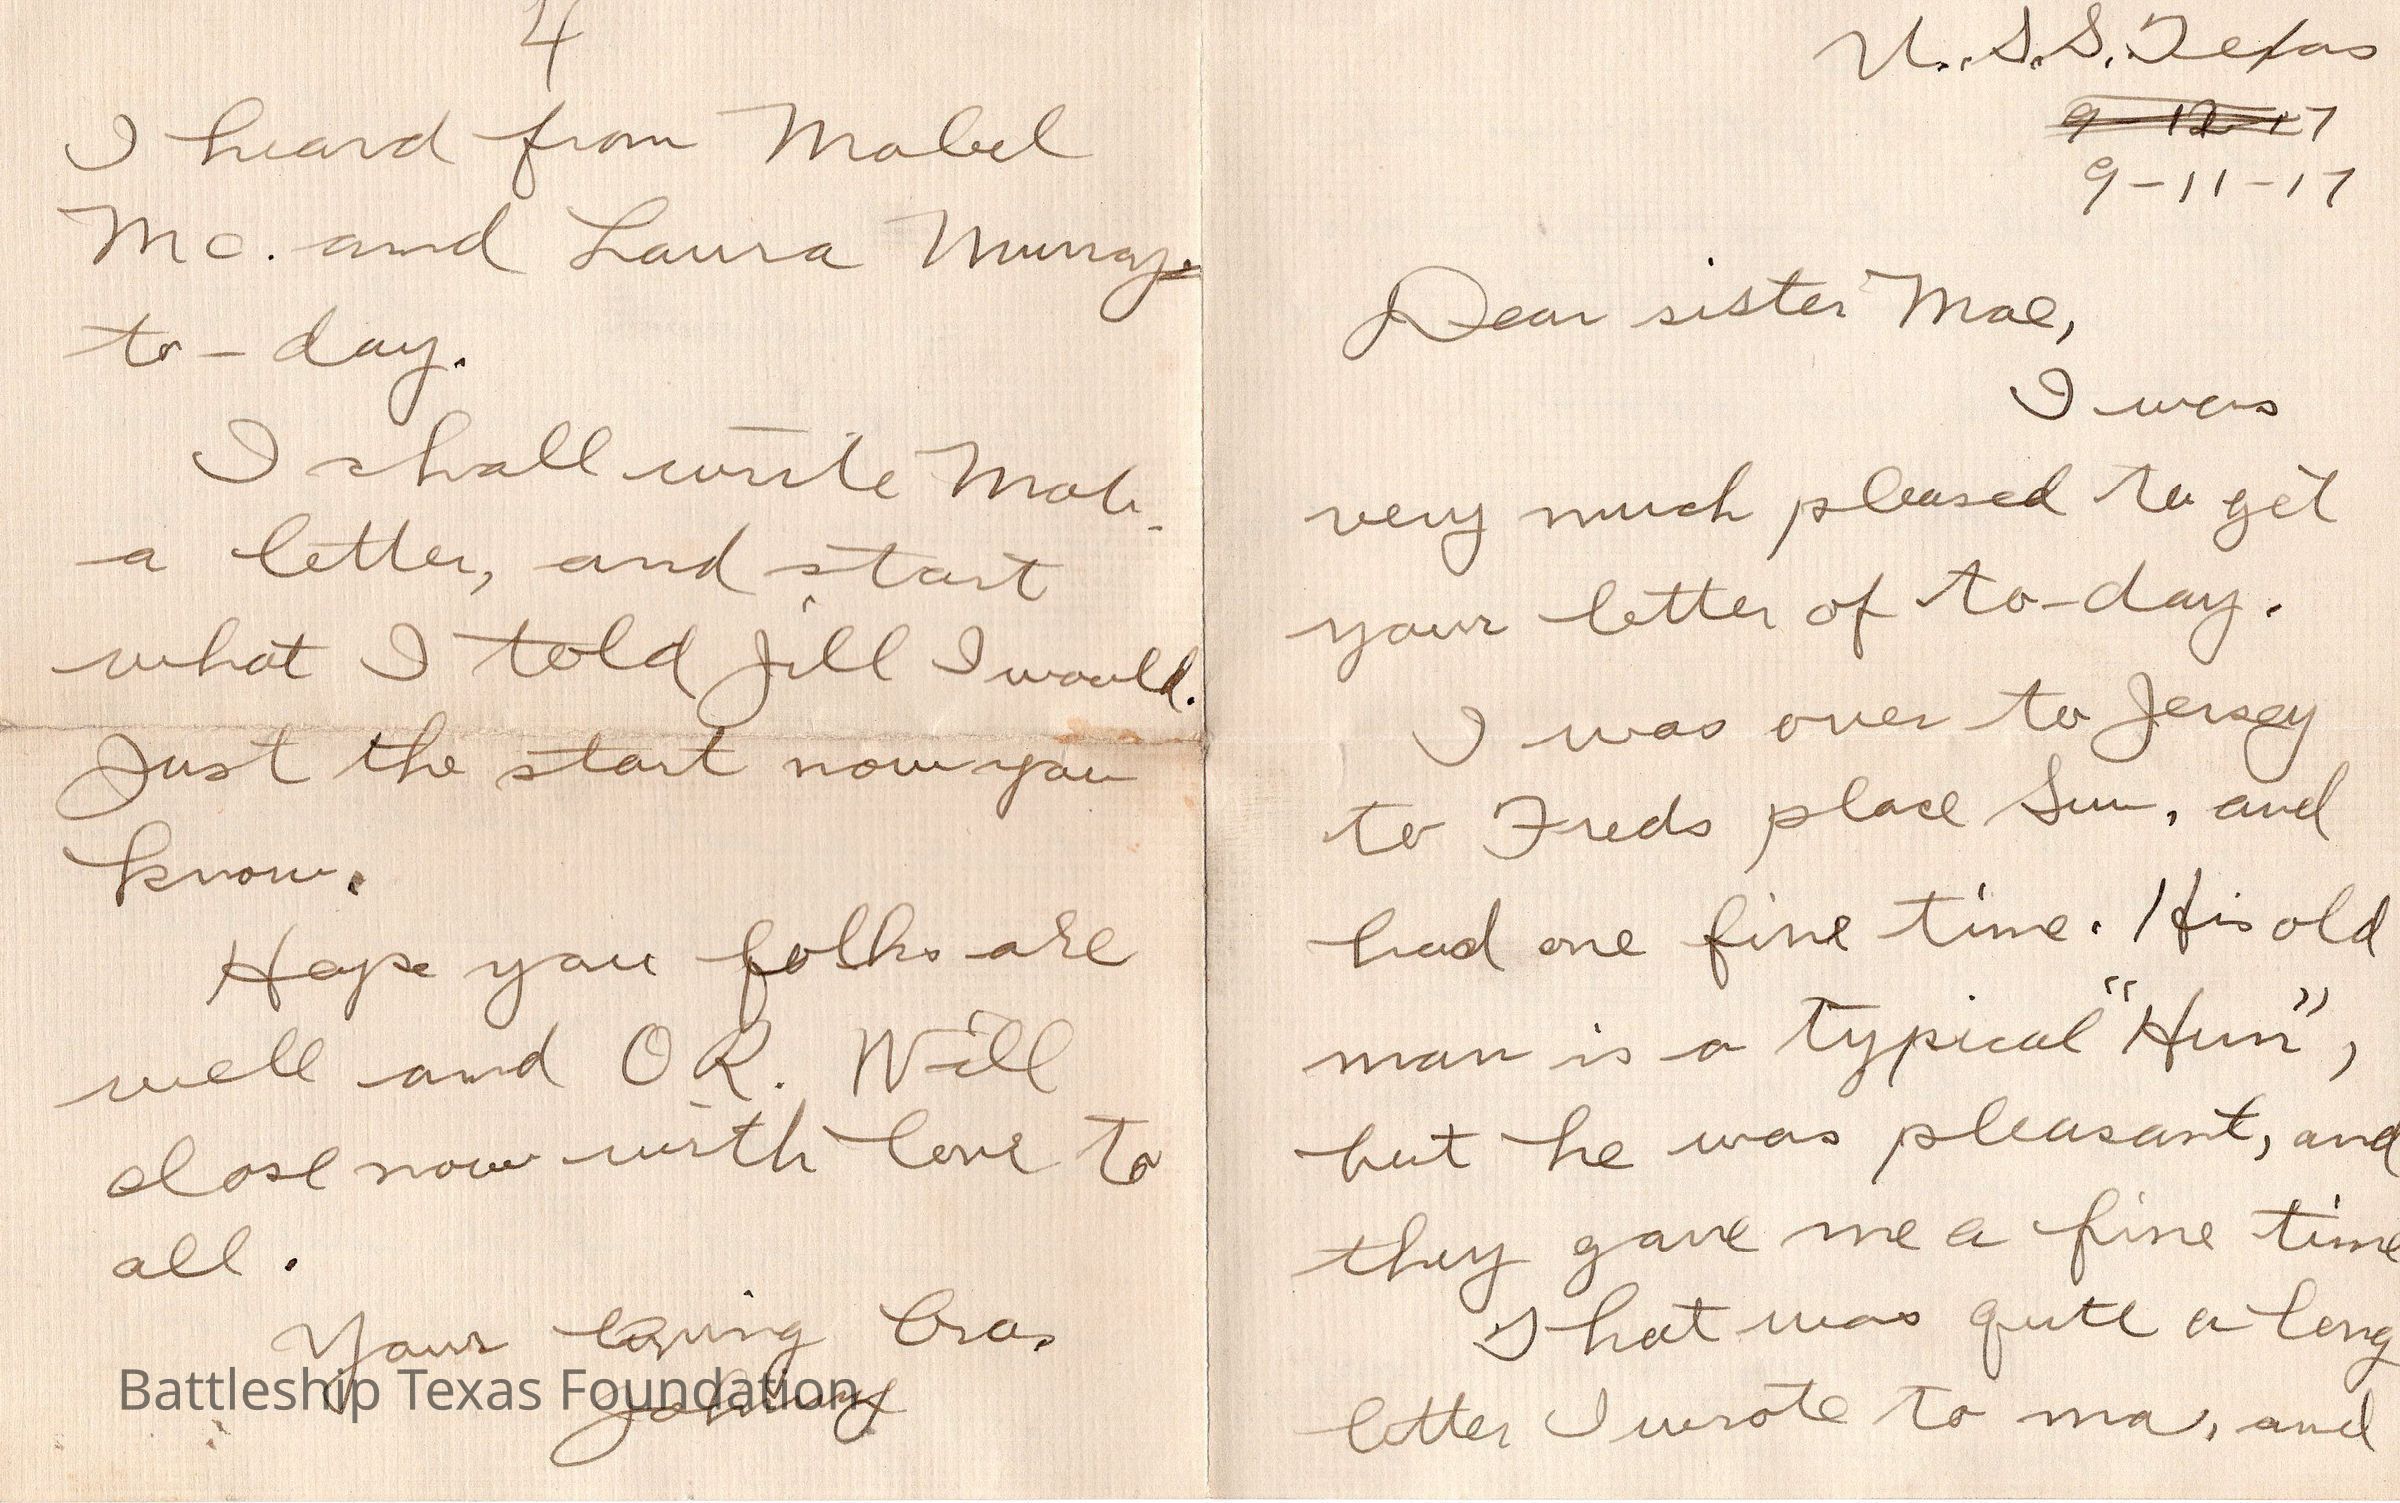 4
I heard from Mabel
Mc. and Laura Murray.
to-day.
I shall write Mab.
a letter, and start
what I told Jill I would.
Just the start now you
know.
Hope you folks are
well and OK. Will
close now with love to
all.
Your loving bro.
Johnny
Battleship Texas Foundation
U.S.S. Texas
9-12-17
9-11-17
Dear sister Mae,
I was
very much pleased to get
your letter of to-day.
I was over to Jersey
to Freds place Sun, and
had one fine time. His old
man is a typical "Hun",
but he was pleasant, and
they gave me a fine time
That was quite a long
letter I wrote to ma, and